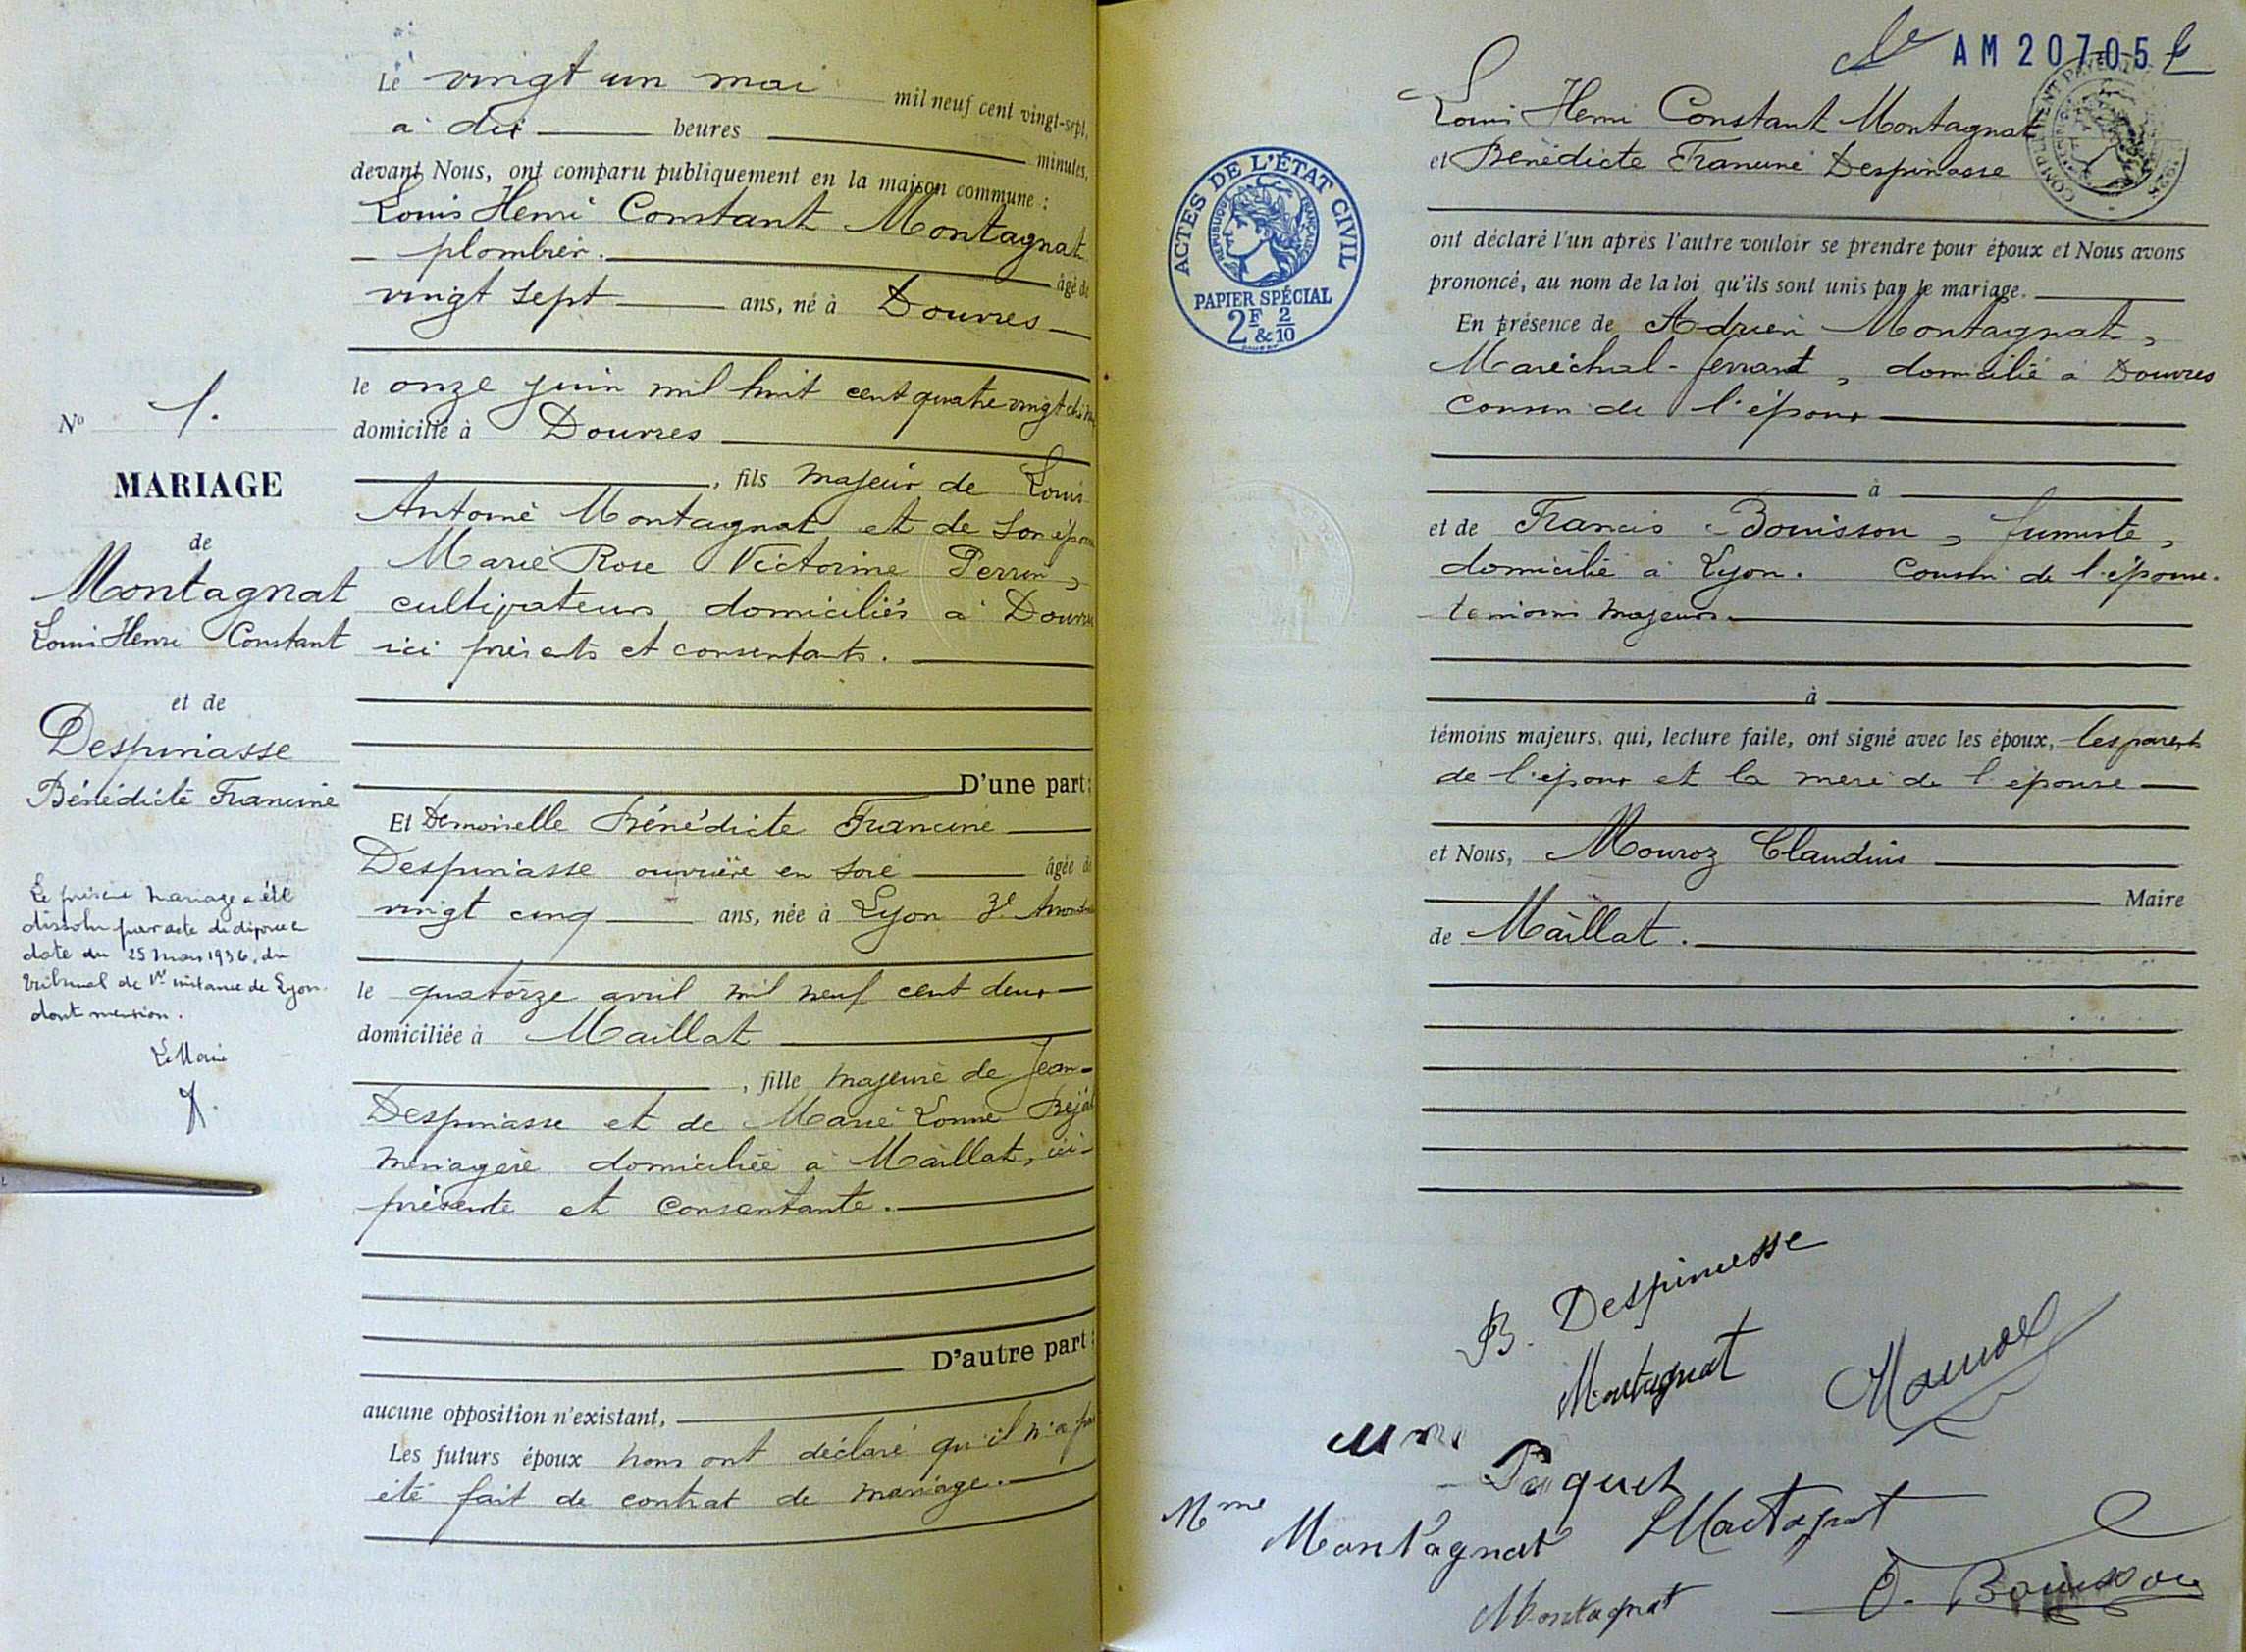 N° 1.
MARIAGE
de
Montagnat
Louis Henri Constant
et de
Despiniasse
Bénédicte Francine
Le présent mariage a été
dissolu par acte de divorce
date du 25 Mars 1936, du
tribunal de 1re instance de Lyon
dont mention.
Le Maire
Le vingt un mai mil neuf cent vingt-sept,
à dix heures minutes,
devant Nous, ont comparu publiquement en la maison commune :
Louis Henri Constant Montagnat
plombier. âgé de
vingt sept ans, né à Douvres
le onze juin mil huit cent quatre vingt dix neuf
domicilié à Douvres
, fils majeur de Louis
Antoine Montagnat et de son épouse
Marie Rose Victorine Perrin,
cultivateurs domiciliés à Douvres
ici présents et consentants.
D'une part;
Et Demoiselle Bénédicte Francine
Despiniasse ouvrière en soie âgée de
vingt cinq ans, née à Lyon 3e
le quatorze avril mil neuf cent deux
domiciliée à Maillat
, fille majeure de Jean
Despiniasse et de Marie Louise
ménagère domiciliée à Maillat, ici
présente et consentante.
D'autre part;
aucune opposition n'existant,
Les futurs époux nous ont déclaré qu'il n'a pas
été fait de contrat de mariage.
AM 20705
Louis Henri Constant Montagnat
et Bénédicte Francine Despiniasse
ACTES DE L'ÉTAT CIVIL
RÉPUBLIQUE FRANÇAISE
PAPIER SPÉCIAL
2F & 2/10
ont déclaré l'un après l'autre vouloir se prendre pour époux et Nous avons
prononcé, au nom de la loi qu'ils sont unis par le mariage.
En présence de Adrien Montagnat,
Maréchal-ferrant, domicilié à Douvres
cousin de l'époux
à
et de Francis Bouisson, fumiste,
domicilié à Lyon. Cousin de l'épouse.
témoins majeurs.
à
témoins majeurs, qui, lecture faite, ont signé avec les époux, les parents
de l'époux et la mère de l'épouse
et Nous, Mouroz Claudius
Maire
de Maillat.
B. Despiniasse
Montagnat
Mouroz
Paquet
Mme Montagnat Montagnat
Montagnat
Bouisson